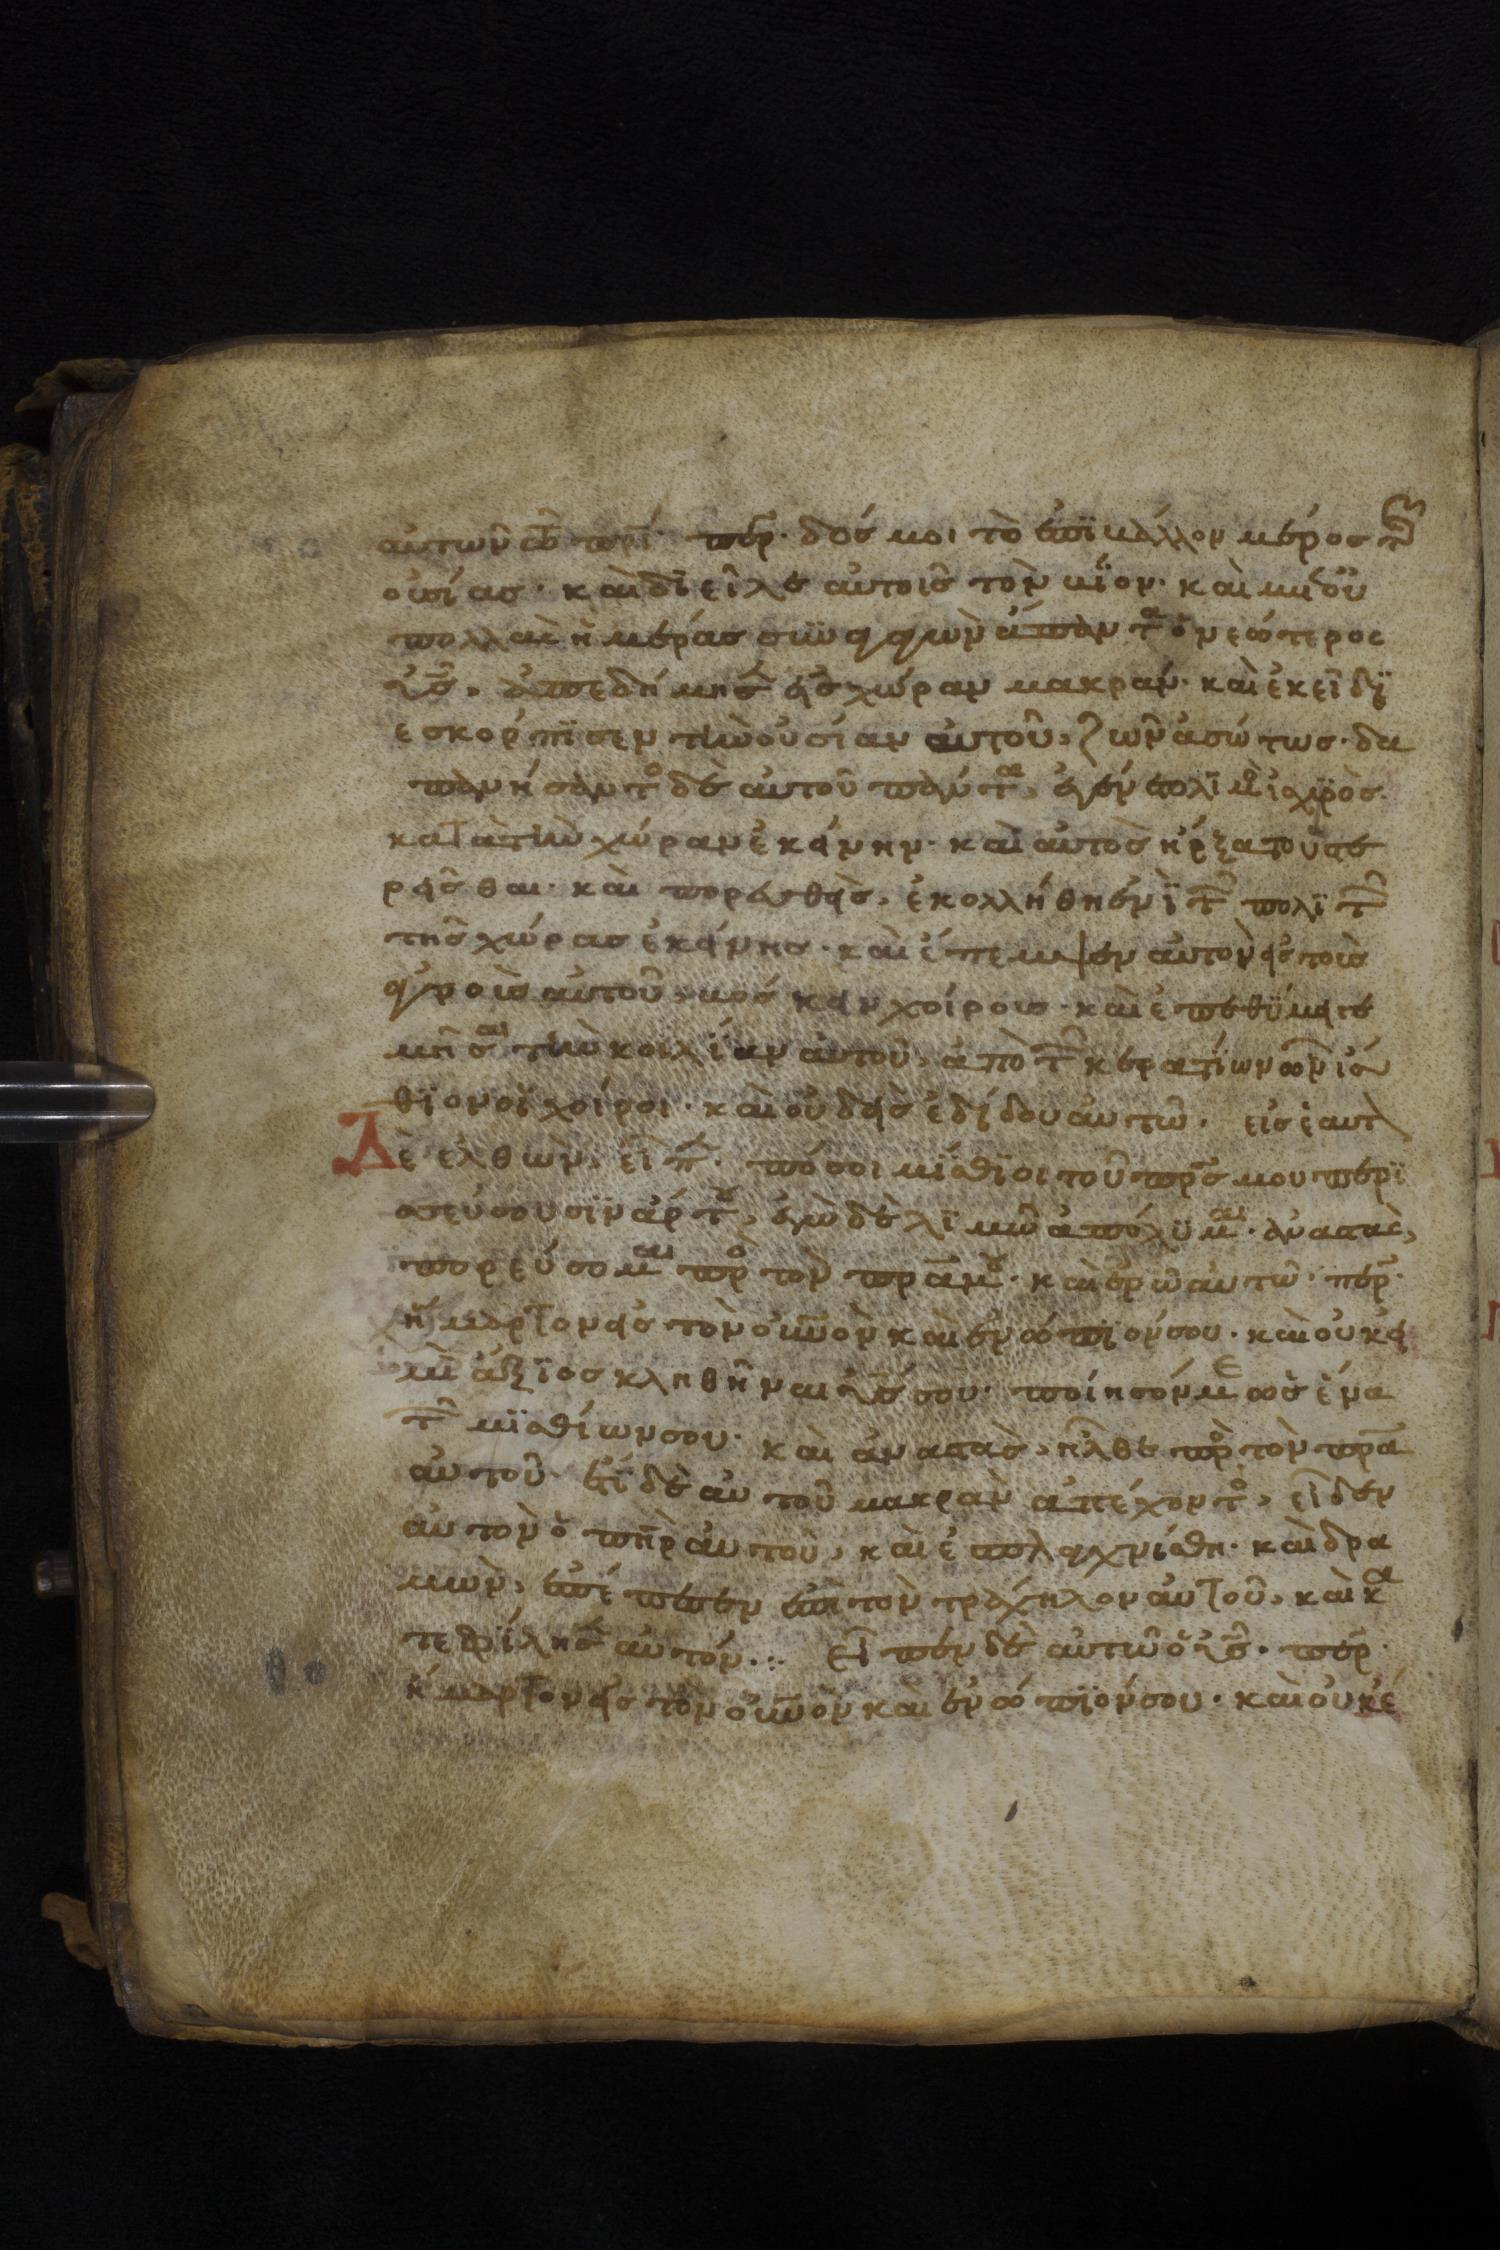 αὐτῶν τῶ πρί· περ· δός μοι τὸ ἐπιβάλλον μέρος τῆς
οὐσίας· καὶ διεῖλε αὐτοῖς τὸν βίον· καὶ μετ οὐ
πολλὰς ἡμέρας συναγαγὼν ἅπαντα ὁ νεώτερος
υἱς, ἀπεδήμησεν εἰς χώραν μακράν· καὶ ἐκεῖ δι
εσκόρπισεν τὴν οὐσίαν αὐτοῦ, ζῶν ἀσώτως· δα
πανήσαντο δὲ αὐτοῦ πάντα, ἐγένετο λιμὸς ἰσχυρὸς
κατὰ τὴν χώραν ἐκείνην· καὶ αὐτὸς ἤρξατο ὑστε
ρεῖσθαι· καὶ πορευθεὶς, ἐκολλήθη ἐνὶ τῶν πολιτῶν
τῆς χώρας ἐκείνης· καὶ ἔπεμψεν αὐτὸν εἰς τοὺς
ἀγροὺς αὐτοῦ, βόσκειν χοίρους· καὶ ἐπεθύμει γε
μῆσαι τὴν κοιλίαν αὐτοῦ, ἀπὸ τῶν κερατίων ὧν ἤσ
θιον οἱ χοῖροι· καὶ οὐδεὶς ἐδίδου αὐτῶ· εἰς ἑαυτὸν
Δὲ ἐλθὼν, εἶπε· πόσοι μίσθιοι τοῦ πρς μου περι
σσεύουσιν ἄρτων, ἐγὼ δὲ λιμῶ ἀπόλυμαι· ἀναστὰς,
πορεύσομαι πρὸς τὸν πρα μου· καὶ ἐρῶ αὐτῶ· περ·
ἥμαρτον εἰς τὸν οὐνον καὶ ἐνώπιόν σου· καὶ οὐκέ
μι ἄξιος κληθῆναι υἱς σου· ποίησόν με ὡς ἕνα
τῶν μισθίων σου· καὶ ἀναστὰς, ἦλθε πρὸς τὸν πρα
αὐτοῦ· ἔτι δὲ αὐτοῦ μακρὰν ἀπέχοντος, εἶδεν
αὐτὸν ὁ πηρ αὐτοῦ, καὶ ἐσπλαχνίσθη· καὶ δρα
μὼν, ἐπέπεσεν ἐπὶ τὸν τράχηλον αὐτοῦ, καὶ κα
τεφίλησεν αὐτόν· Εἶπεν δὲ αὐτῶ ὁ υἱς· περ
ἥμαρτον εἰς τὸν οὐνον καὶ ἐνώπιόν σου· καὶ οὐκέ